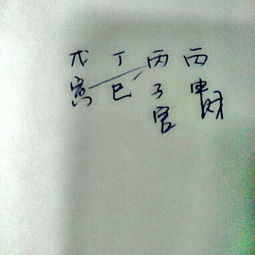 戊丁丙丙
寅巳子申
官财